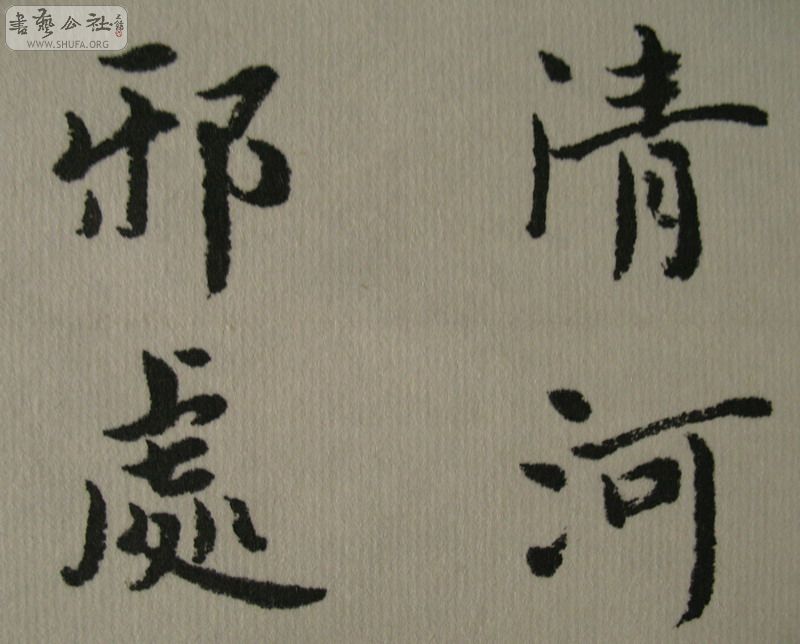 清河
邪處
書藝公社
WWW.SHUFA.ORG